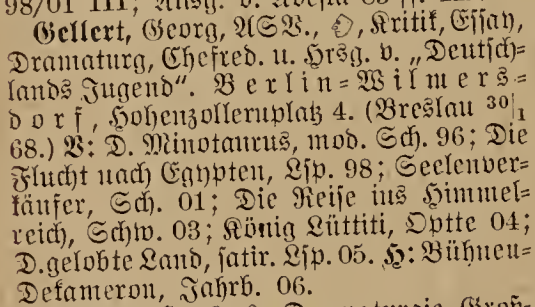 98/01 III; Ausg. v.
Gellert, Georg, ASV., Kritik, Essay,
Dramaturg, Chefred. u. Hrsg. v. „Deutsch=
lands Jugend“. Berlin=Wilmers=
dorf, Hohenzollernplatz 4. (Breslau 30|1
68.) V: D. Minotaurus, mod. Sch. 96; Die
Flucht nach Egypten, Lsp. 98; Seelenver=
käufer, Sch. 01; Die Reise ins Himmel=
reich, Schw. 03; König Lüttiti, Optte 04;
D. gelobte Land, satir. Lsp. 05. H: Bühnen=
Dekameron, Jahrb. 06.